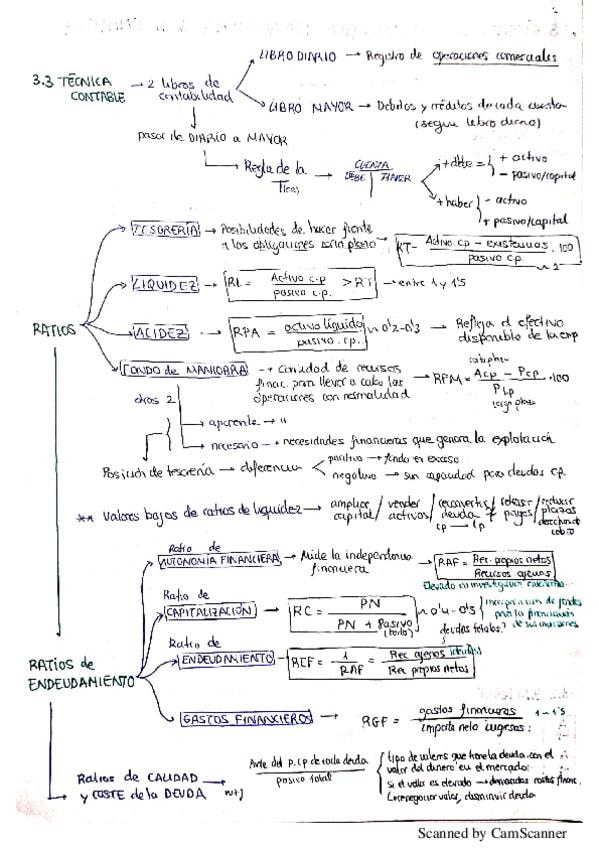 LIBRO DIARIO → Registro de operaciones comerciales
3.3 TÉCNICA CONTABLE → 2 libros de contabilidad
LIBRO MAYOR → Débitos y créditos de cada cuenta
(segun libro diario)
pasar de DIARIO a MAYOR
Regla de la
CUENTA
DEBE | HABER
+ debe = + activo
- pasivo/capital
+ haber - activo
+ pasivo/capital
RATIOS
TESORERÍA → Posibilidades de hacer frente
a las obligaciones corto plazo
RT = Activo cp - existencias . 100
pasivo cp.
LIQUIDEZ → RL = Activo c.p > RT → entre 1 y 1'5
pasivo c.p.
ACIDEZ → RPA = activo líquido ~ 0'2-0'3 → Refleja el efectivo
pasivo. cp. disponible de la emp
FONDO DE MANIOBRA → Cantidad de recursos
financ. para llevar a cabo las
operaciones con normalidad
RFM = Acp - Pcp . 100
PLp
largo plazo
otros 2
aparente → "
necesario → necesidades financieras que genera la explotación
Posición de tesorería → diferencia
positivo → fondo en exceso
negativo → sin capacidad para deudas cp.
** Valores bajos de ratios de liquidez → ampliar capital / vender activos / reconvertir deuda cp → lp / pagos / reducir plazos
cobro
Ratio de
AUTONOMÍA FINANCIERA → Mide la independencia
financiera
RAF = Rec. propios netos
Recursos ajenos
Ratio de
CAPITALIZACIÓN → RC = PN ~ 0'4 - 0'5
PN + Pasivo
(todo)
deudas totales?
RATIOS de
ENDEUDAMIENTO
Ratio de
ENDEUDAMIENTO → REF = 1 = Rec ajenos
RAF Rec propios netos
GASTOS FINANCIEROS → RGF = gastos financieros 1-1'5
importe neto ingresos
Ratios de CALIDAD
y COSTE de la DEUDA
Parte del p. cp de toda deuda
pasivo total
tipo de interés que tiene la deuda con el
valor del dinero en el mercado
si el valor es elevado → demasiados costes financ.
renegociar valor, disminuir deuda
Scanned by CamScanner